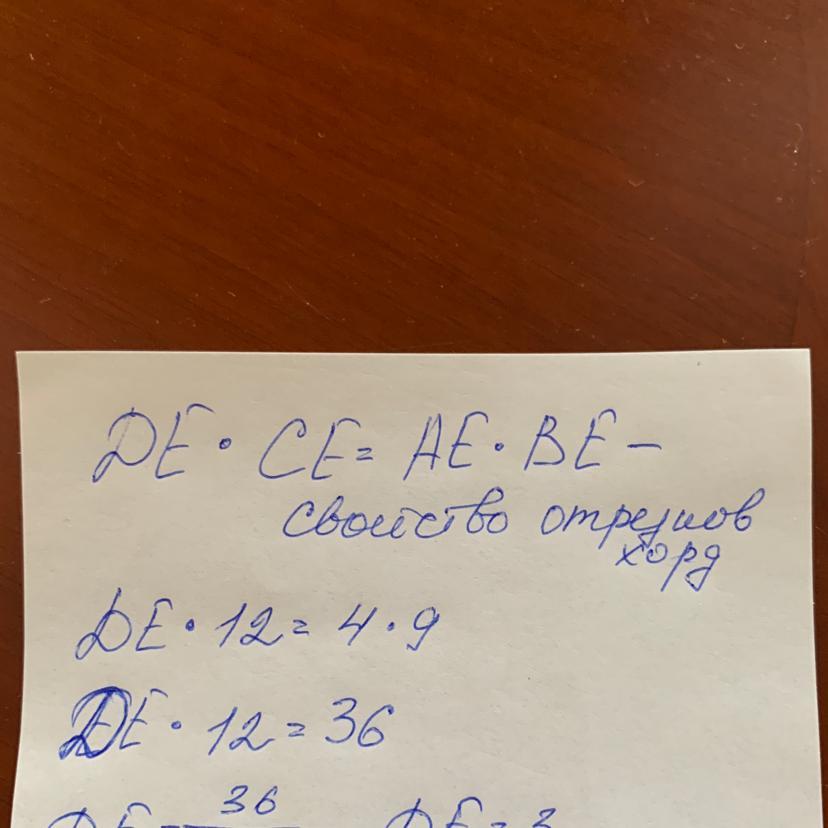 DE · CE = AE · BE –
свойство отрезков
хорд
DE · 12 = 4 · 9
DE · 12 = 36
DE = 36 DE = 3